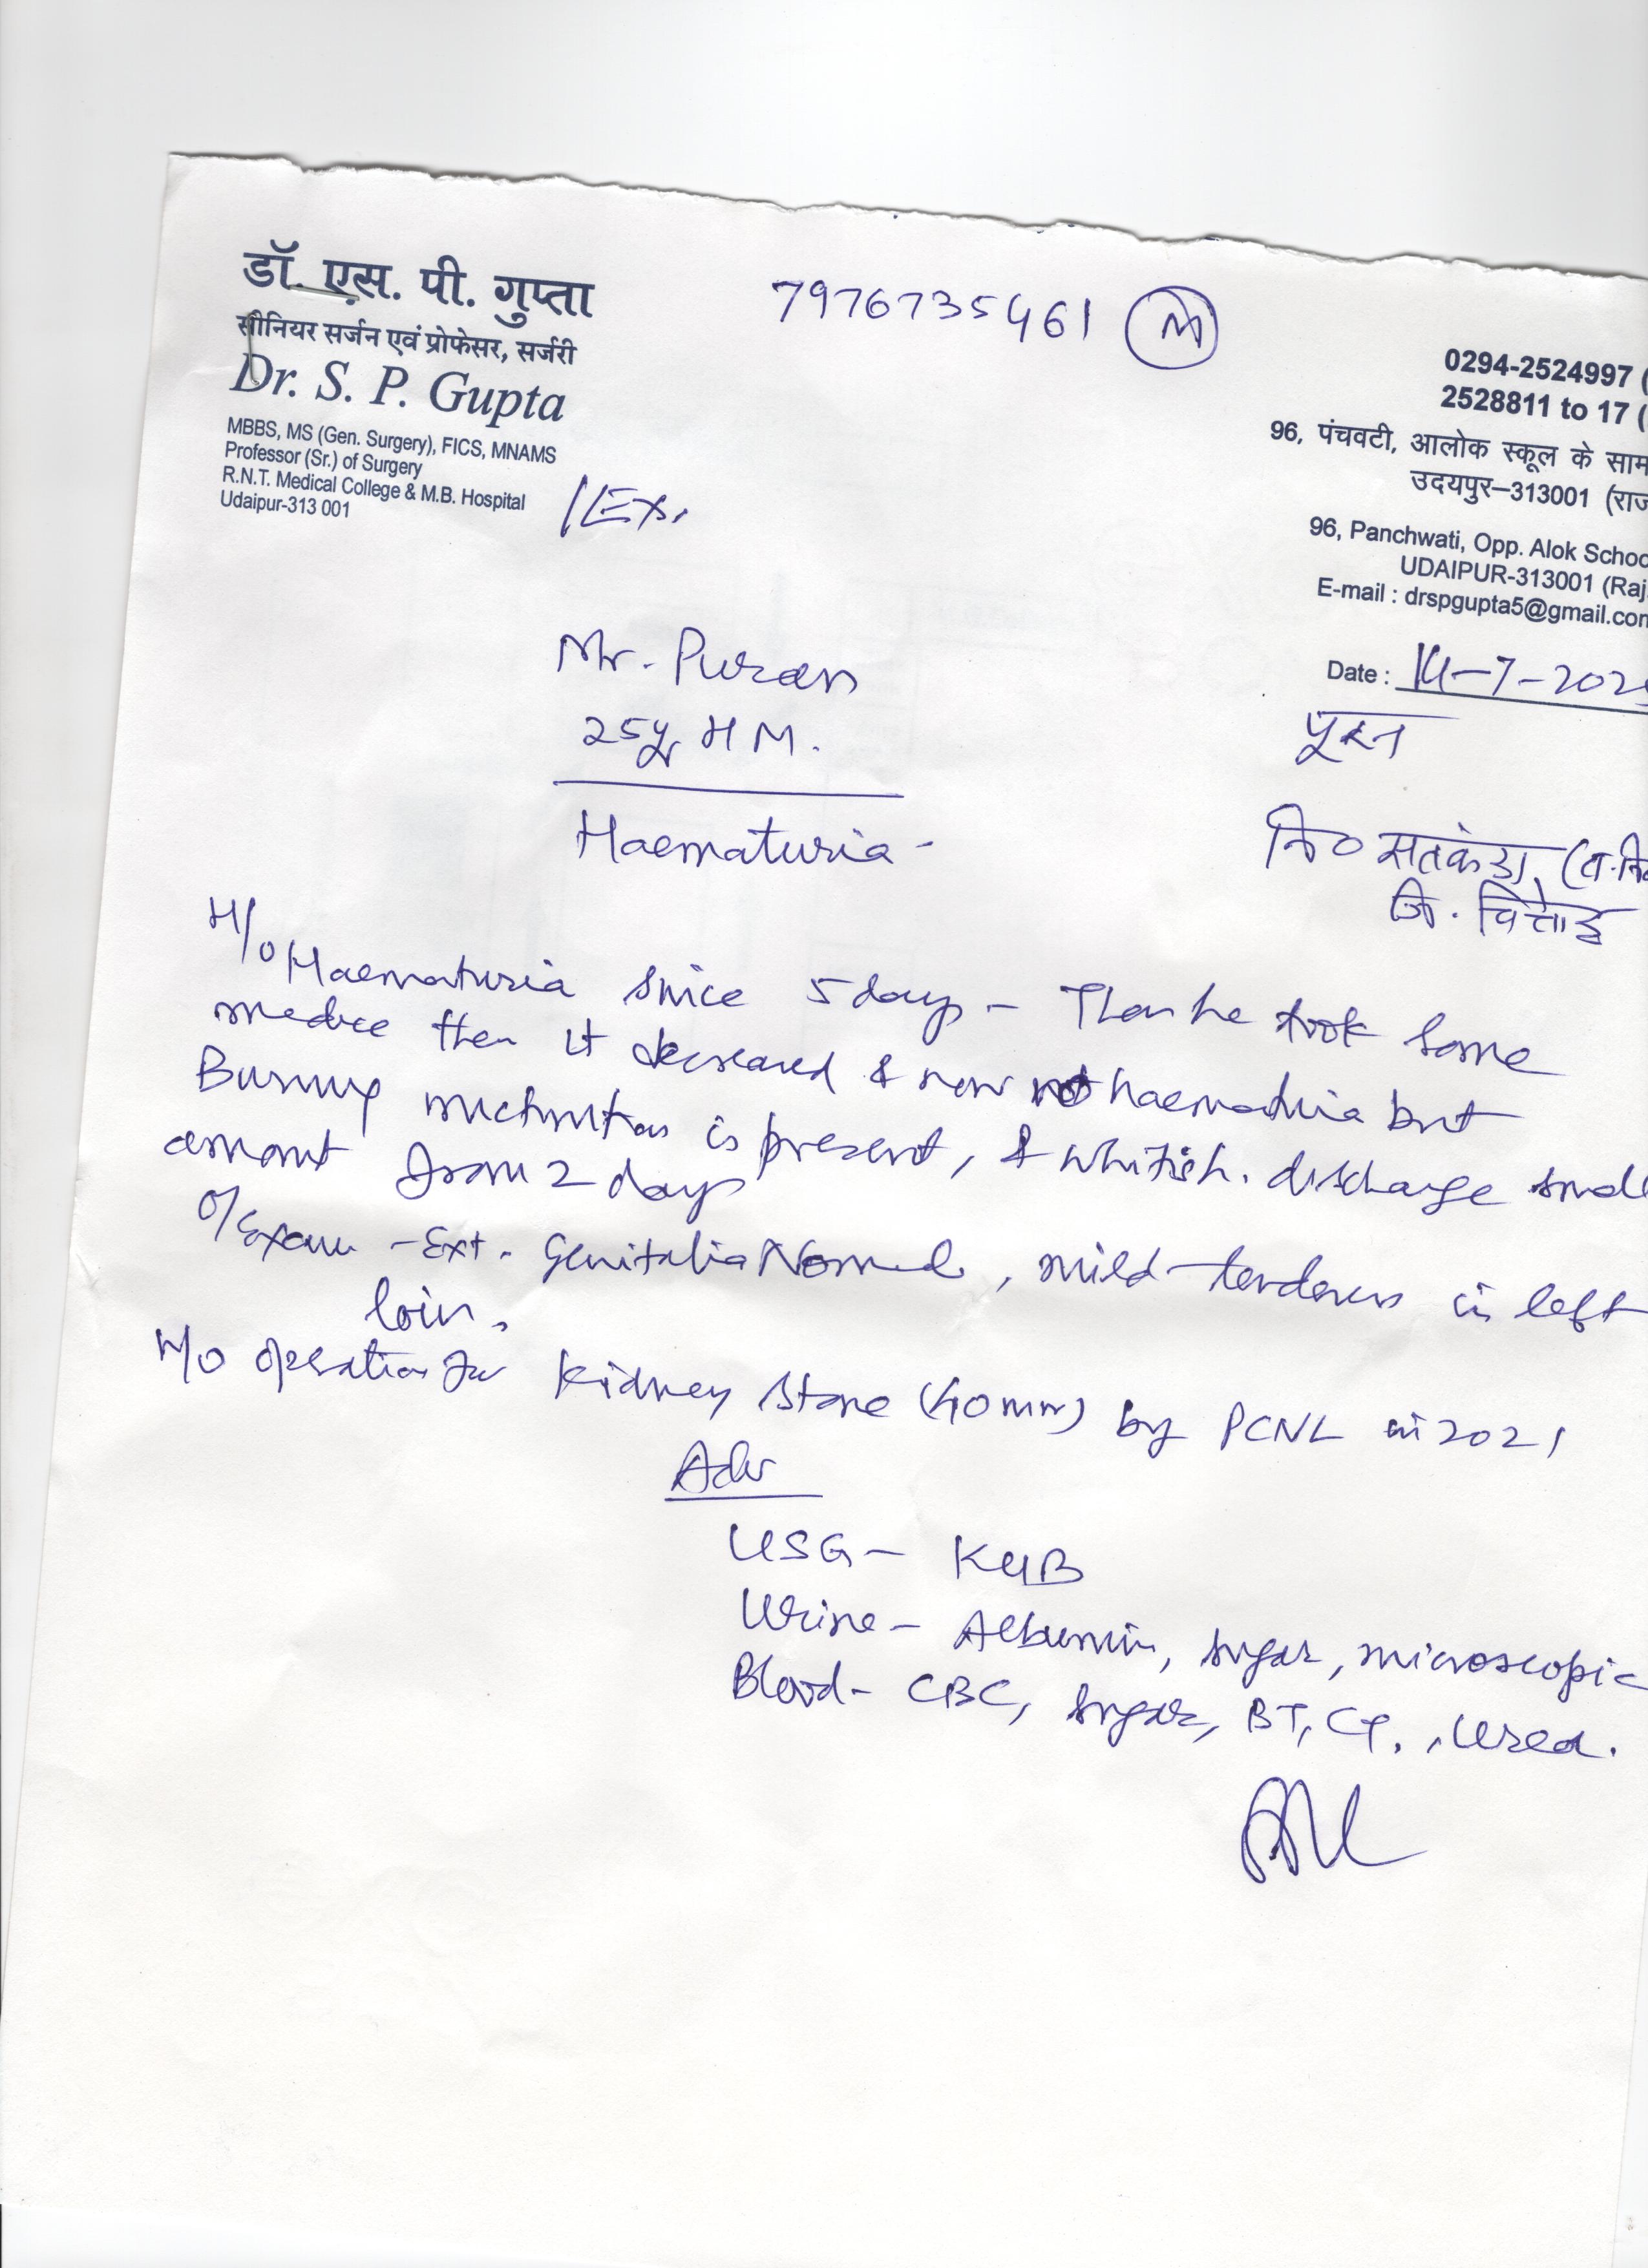 डॉ. एस. पी. गुप्ता
सीनियर सर्जन एवं प्रोफेसर, सर्जरी
Dr. S. P. Gupta
MBBS, MS (Gen. Surgery), FICS, MNAMS
Professor (Sr.) of Surgery
R.N.T. Medical College & M.B. Hospital
Udaipur-313 001
7976735461 M
0294-2524997 (
2528811 to 17 (
96, पंचवटी, आलोक स्कूल के साम
उदयपुर–313001 (राज
96, Panchwati, Opp. Alok Schoo
UDAIPUR-313001 (Raj.
E-mail : drspgupta5@gmail.com
Date : 14-7-202
Ex.
Mr. Puran
25yr HM.
पूरन
Haematuria -
नि० सतकंडा (
जि. चित्तौड़
H/o Haematuria since 5 days - Than he took Some
then it decreased & now not haematuria but
Burning micturition is present, & whitish. discharge small
amount from 2 days
O/Exam - Ext. Genitalia Normal, mild tenderness in left
loin.
H/O operation for Kidney Stone (40mm) by PCNL in 2021
Adv
USG - KUB
Urine - Albumin, Sugar, microscopic
Blood - CBC, Sugar, BT, CT., Urea.